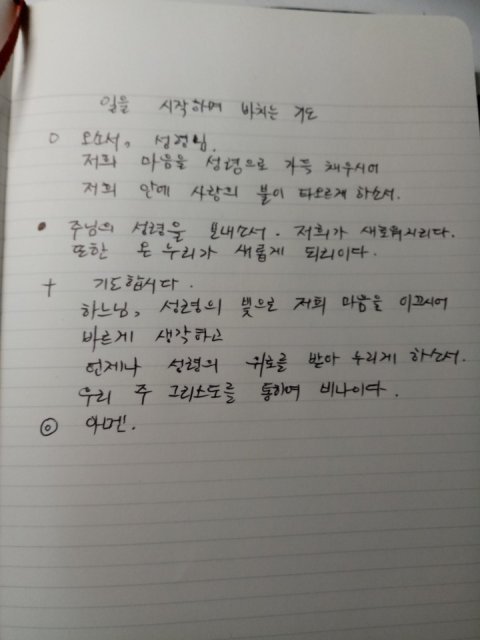 일을 시작하며 바치는 기도
○ 오소서, 성령님.
저희 마음을 성령으로 가득 채우시어
저희 안에 사랑의 불이 타오르게 하소서.
● 주님의 성령을 보내소서. 저희가 새로워지리다.
또한 온 누리가 새롭게 되리이다.
† 기도합시다.
하느님, 성령의 빛으로 저희 마음을 이끄시어
바르게 생각하고
언제나 성령의 위로를 받아 누리게 하소서.
우리 주 그리스도를 통하여 비나이다.
◎ 아멘.